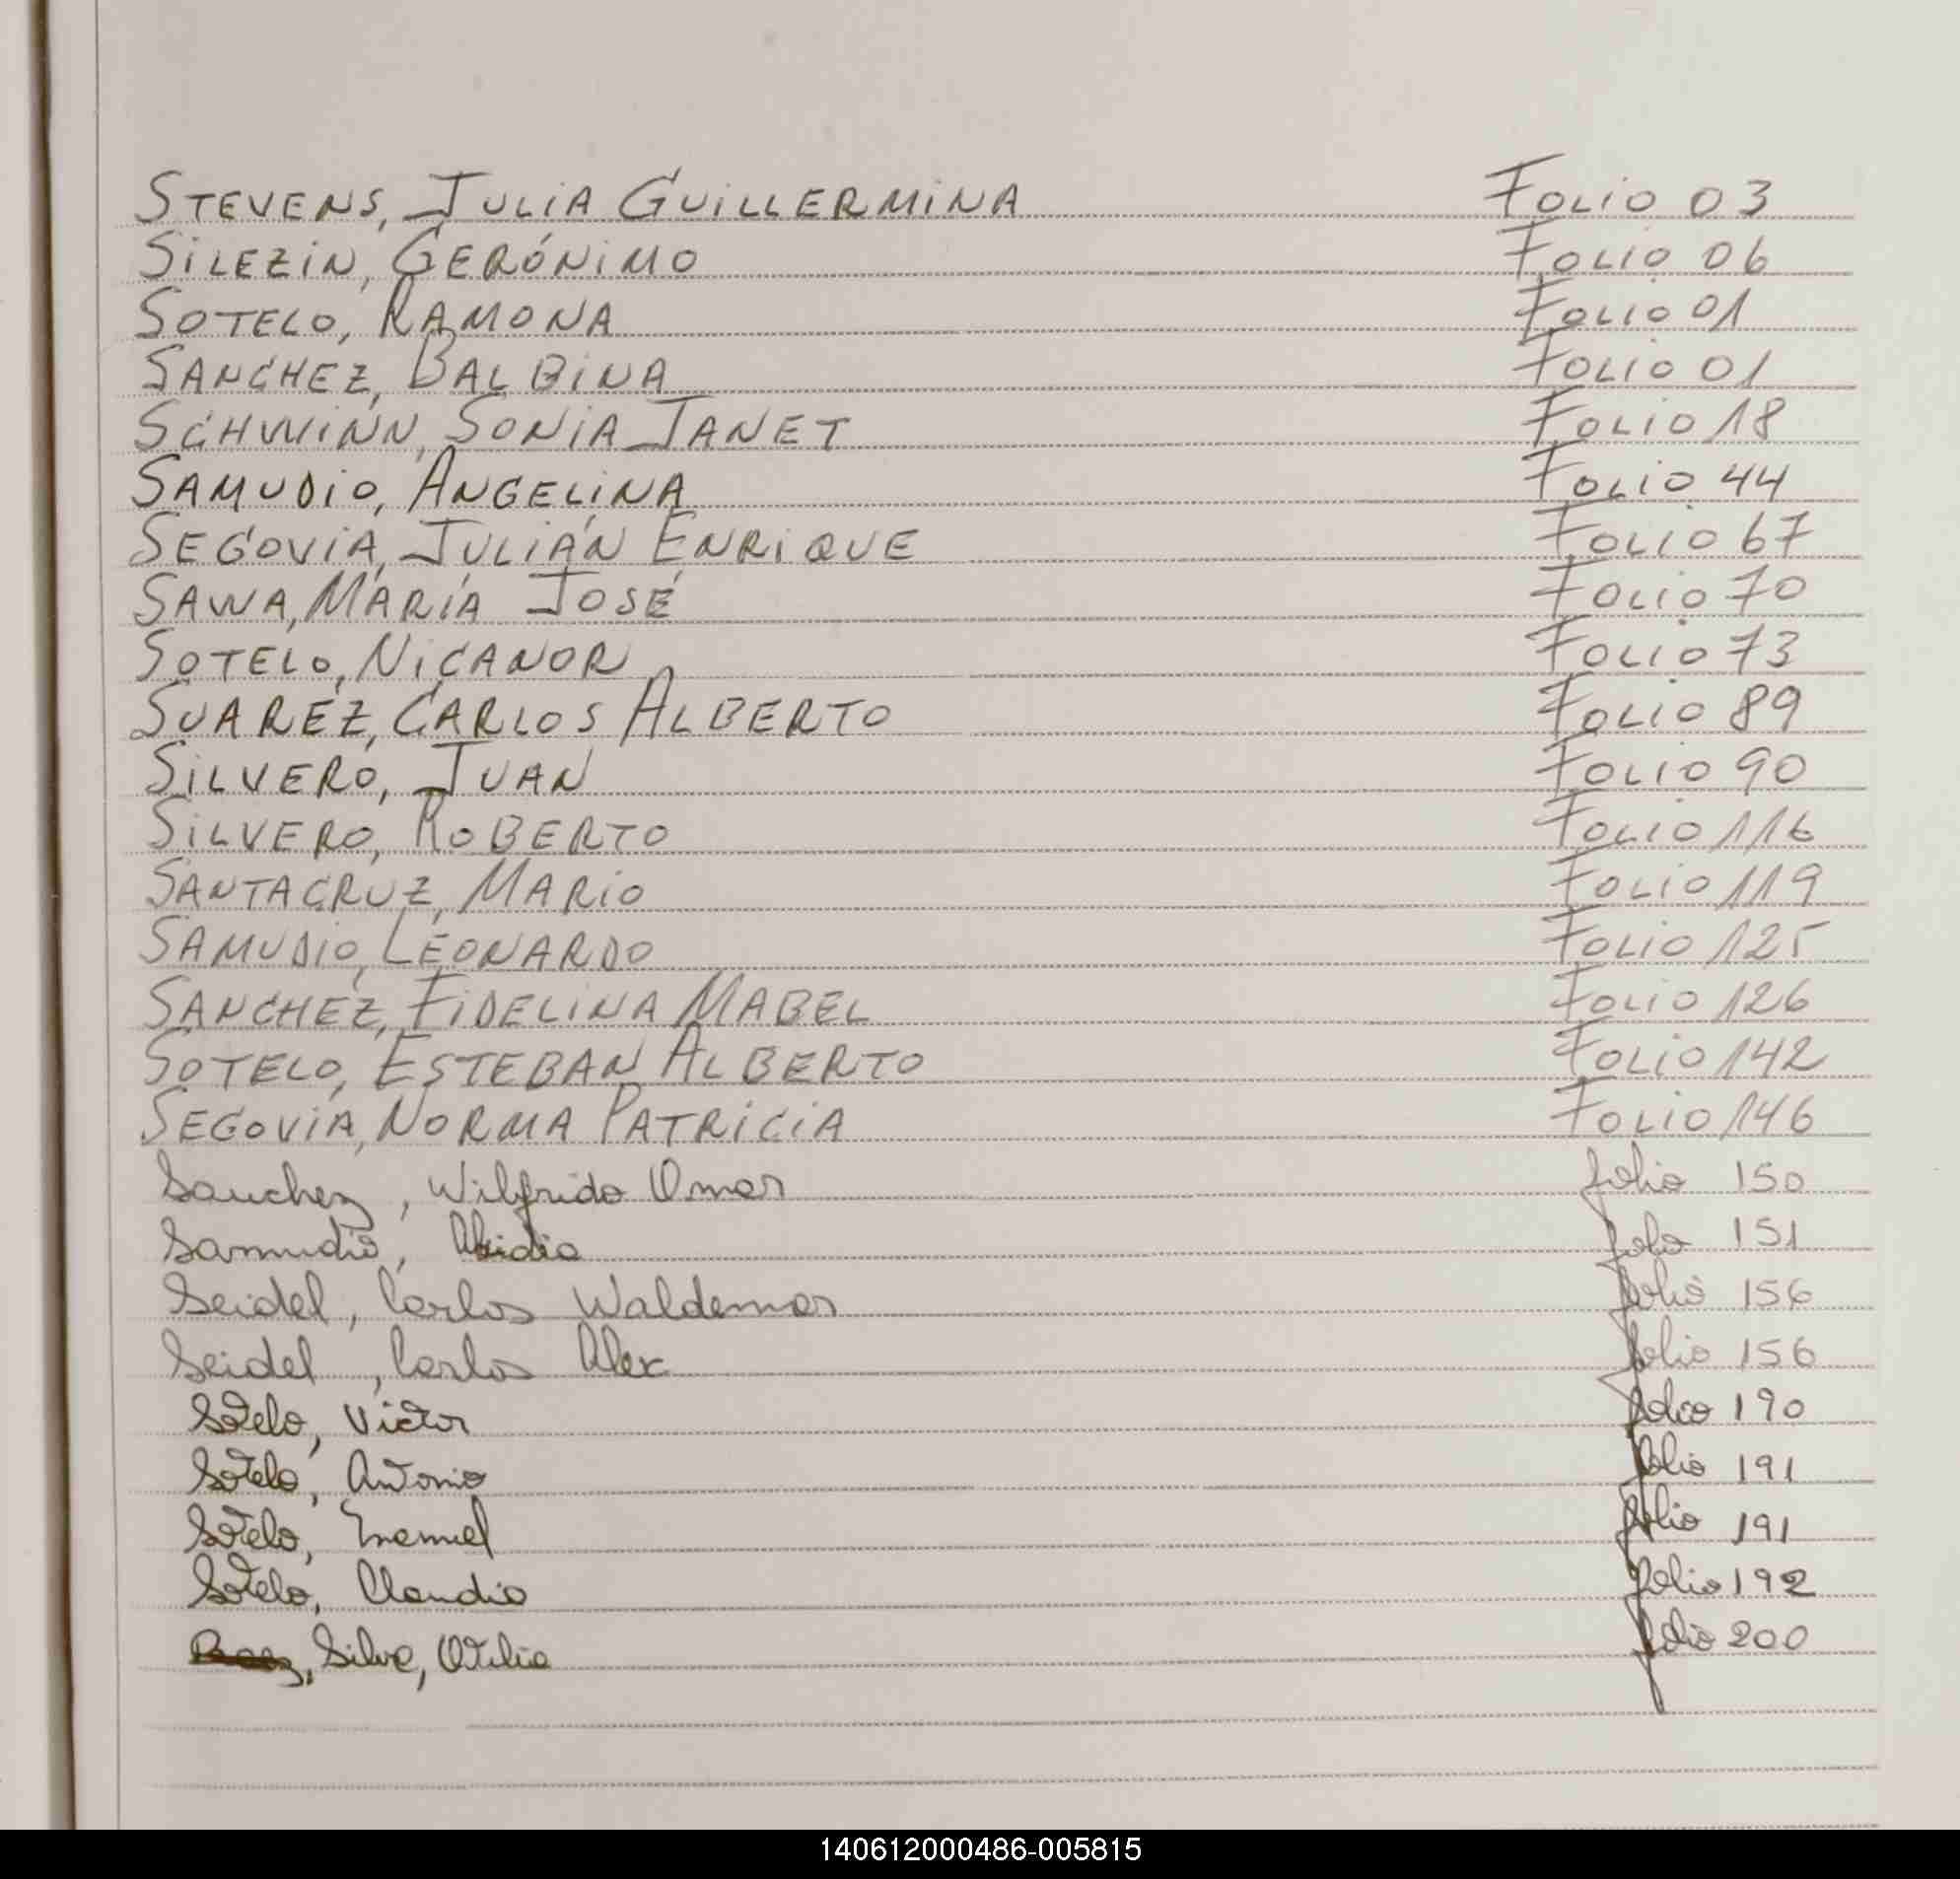 STEVENS, JULIA GUILLERMINA Folio 03
SILEZIN, GERÓNIMO Folio 06
SOTELO, RAMONA Folio 01
SANCHEZ, BALBINA Folio 01
SCHWINN, SONIA JANET Folio 18
SAMUDIO, ANGELINA Folio 44
SEGOVIA, JULIÁN ENRIQUE Folio 67
SAWA, MARÍA JOSÉ Folio 70
SOTELO, NICANOR Folio 73
SUAREZ, CARLOS ALBERTO Folio 89
SILVERO, JUAN Folio 90
SILVERO, ROBERTO Folio 116
SANTACRUZ, MARIO Folio 119
SAMUDIO, LEONARDO Folio 125
SANCHEZ, FIDELINA MABEL Folio 126
SOTELO, ESTEBAN ALBERTO Folio 142
SEGOVIA, NORMA PATRICIA Folio 146
Sanchez, Wilfrido Omar folio 150
Samudio, folio 151
Seidel, Carlos Waldemar folio 156
Seidel, Carlos Alex folio 156
Sotelo, Victor folio 190
Sotelo, Antonio folio 191
Sotelo, folio 191
Sotelo, Claudio folio 192
Silva, Otilia folio 200
140612000486-005815